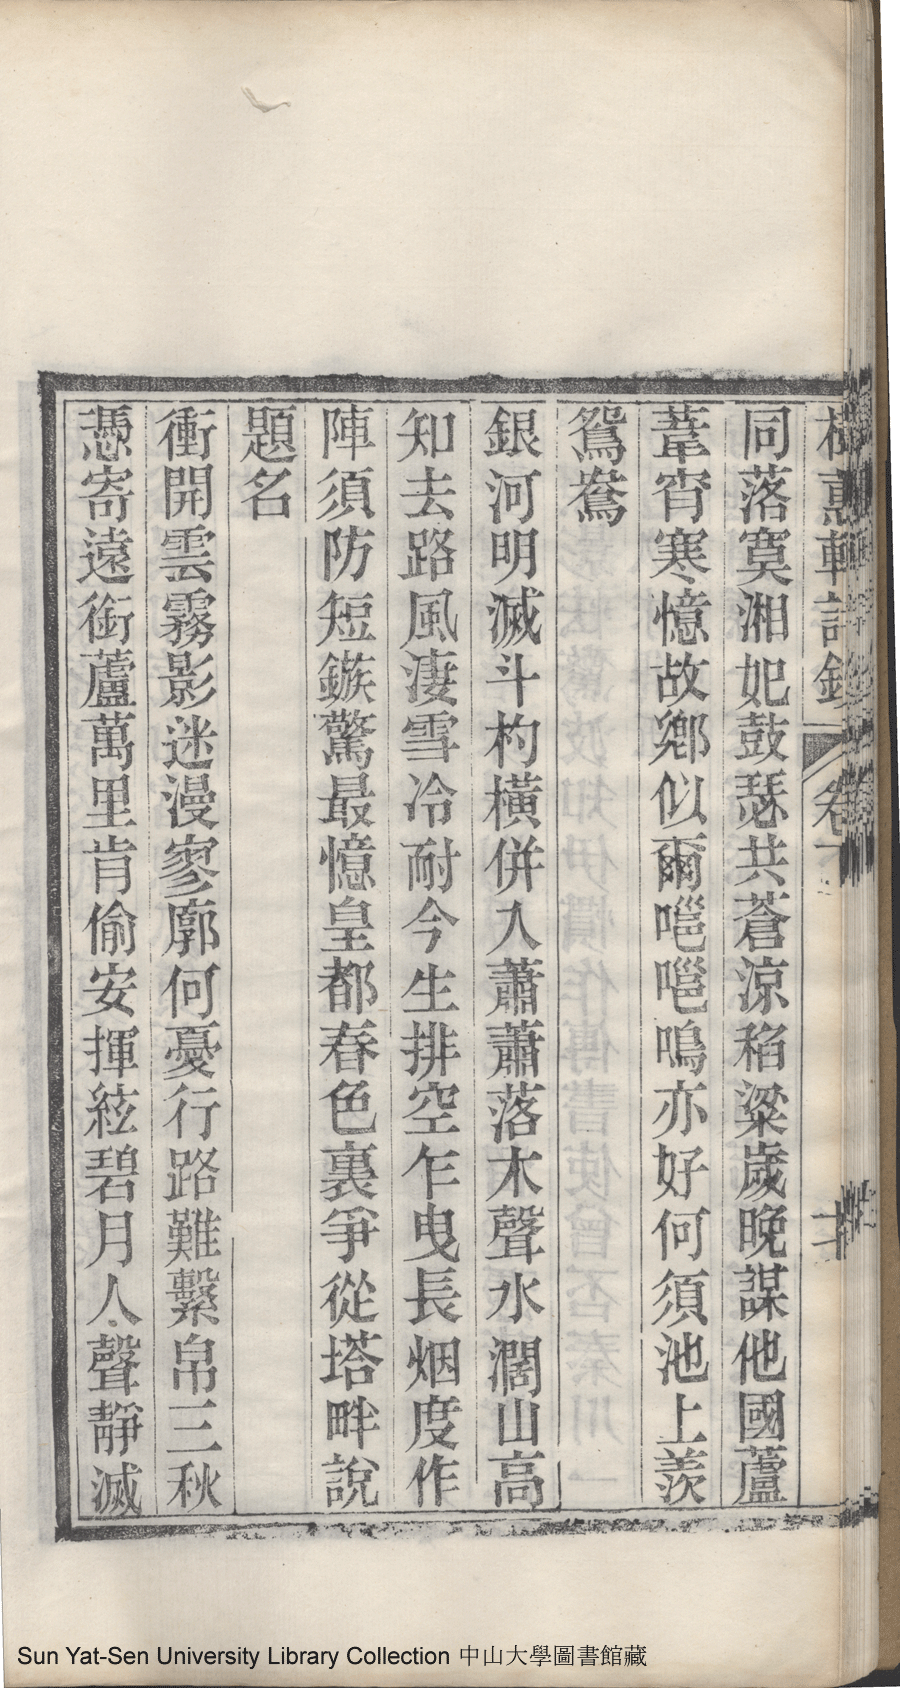 同落寞湘妃鼓瑟共蒼涼稻粱歲晚謀他國蘆
葦宵寒憶故鄉似爾嗈嗈鳴亦好何須池上羨
鴛鴦
銀河明滅斗杓橫併入蕭蕭落木聲水濶山高
知去路風淒雪冷耐今生排空乍曳長烟度作
陣須防短鏃驚最憶皇都春色裏爭從塔畔說
題名
衝開雲霧影迷漫寥廓何憂行路難繫帛三秋
憑寄遠銜蘆萬里肯偷安揮絃碧月人聲靜滅
Sun Yat-Sen University Library Collection 中山大學圖書館藏